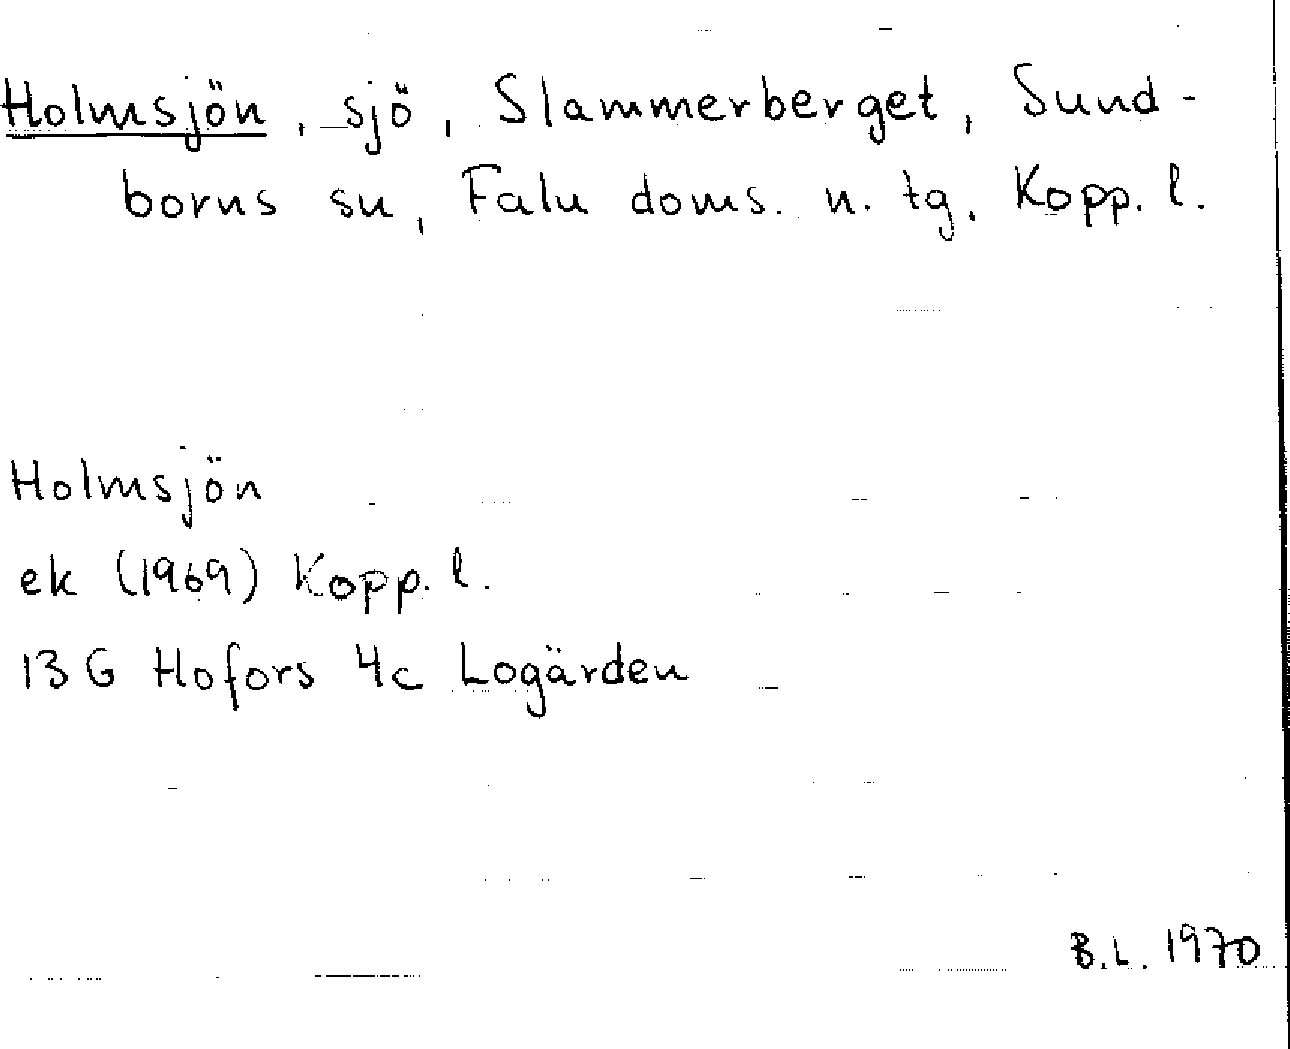 Holmsjön, sjö, Slammerberget, Sund-
borns sn, Falu doms. n. tg, Kopp. l.
Holmsjön
ek (1969) Kopp. l.
13 G Hofors 4c Logärden
B.L. 1970